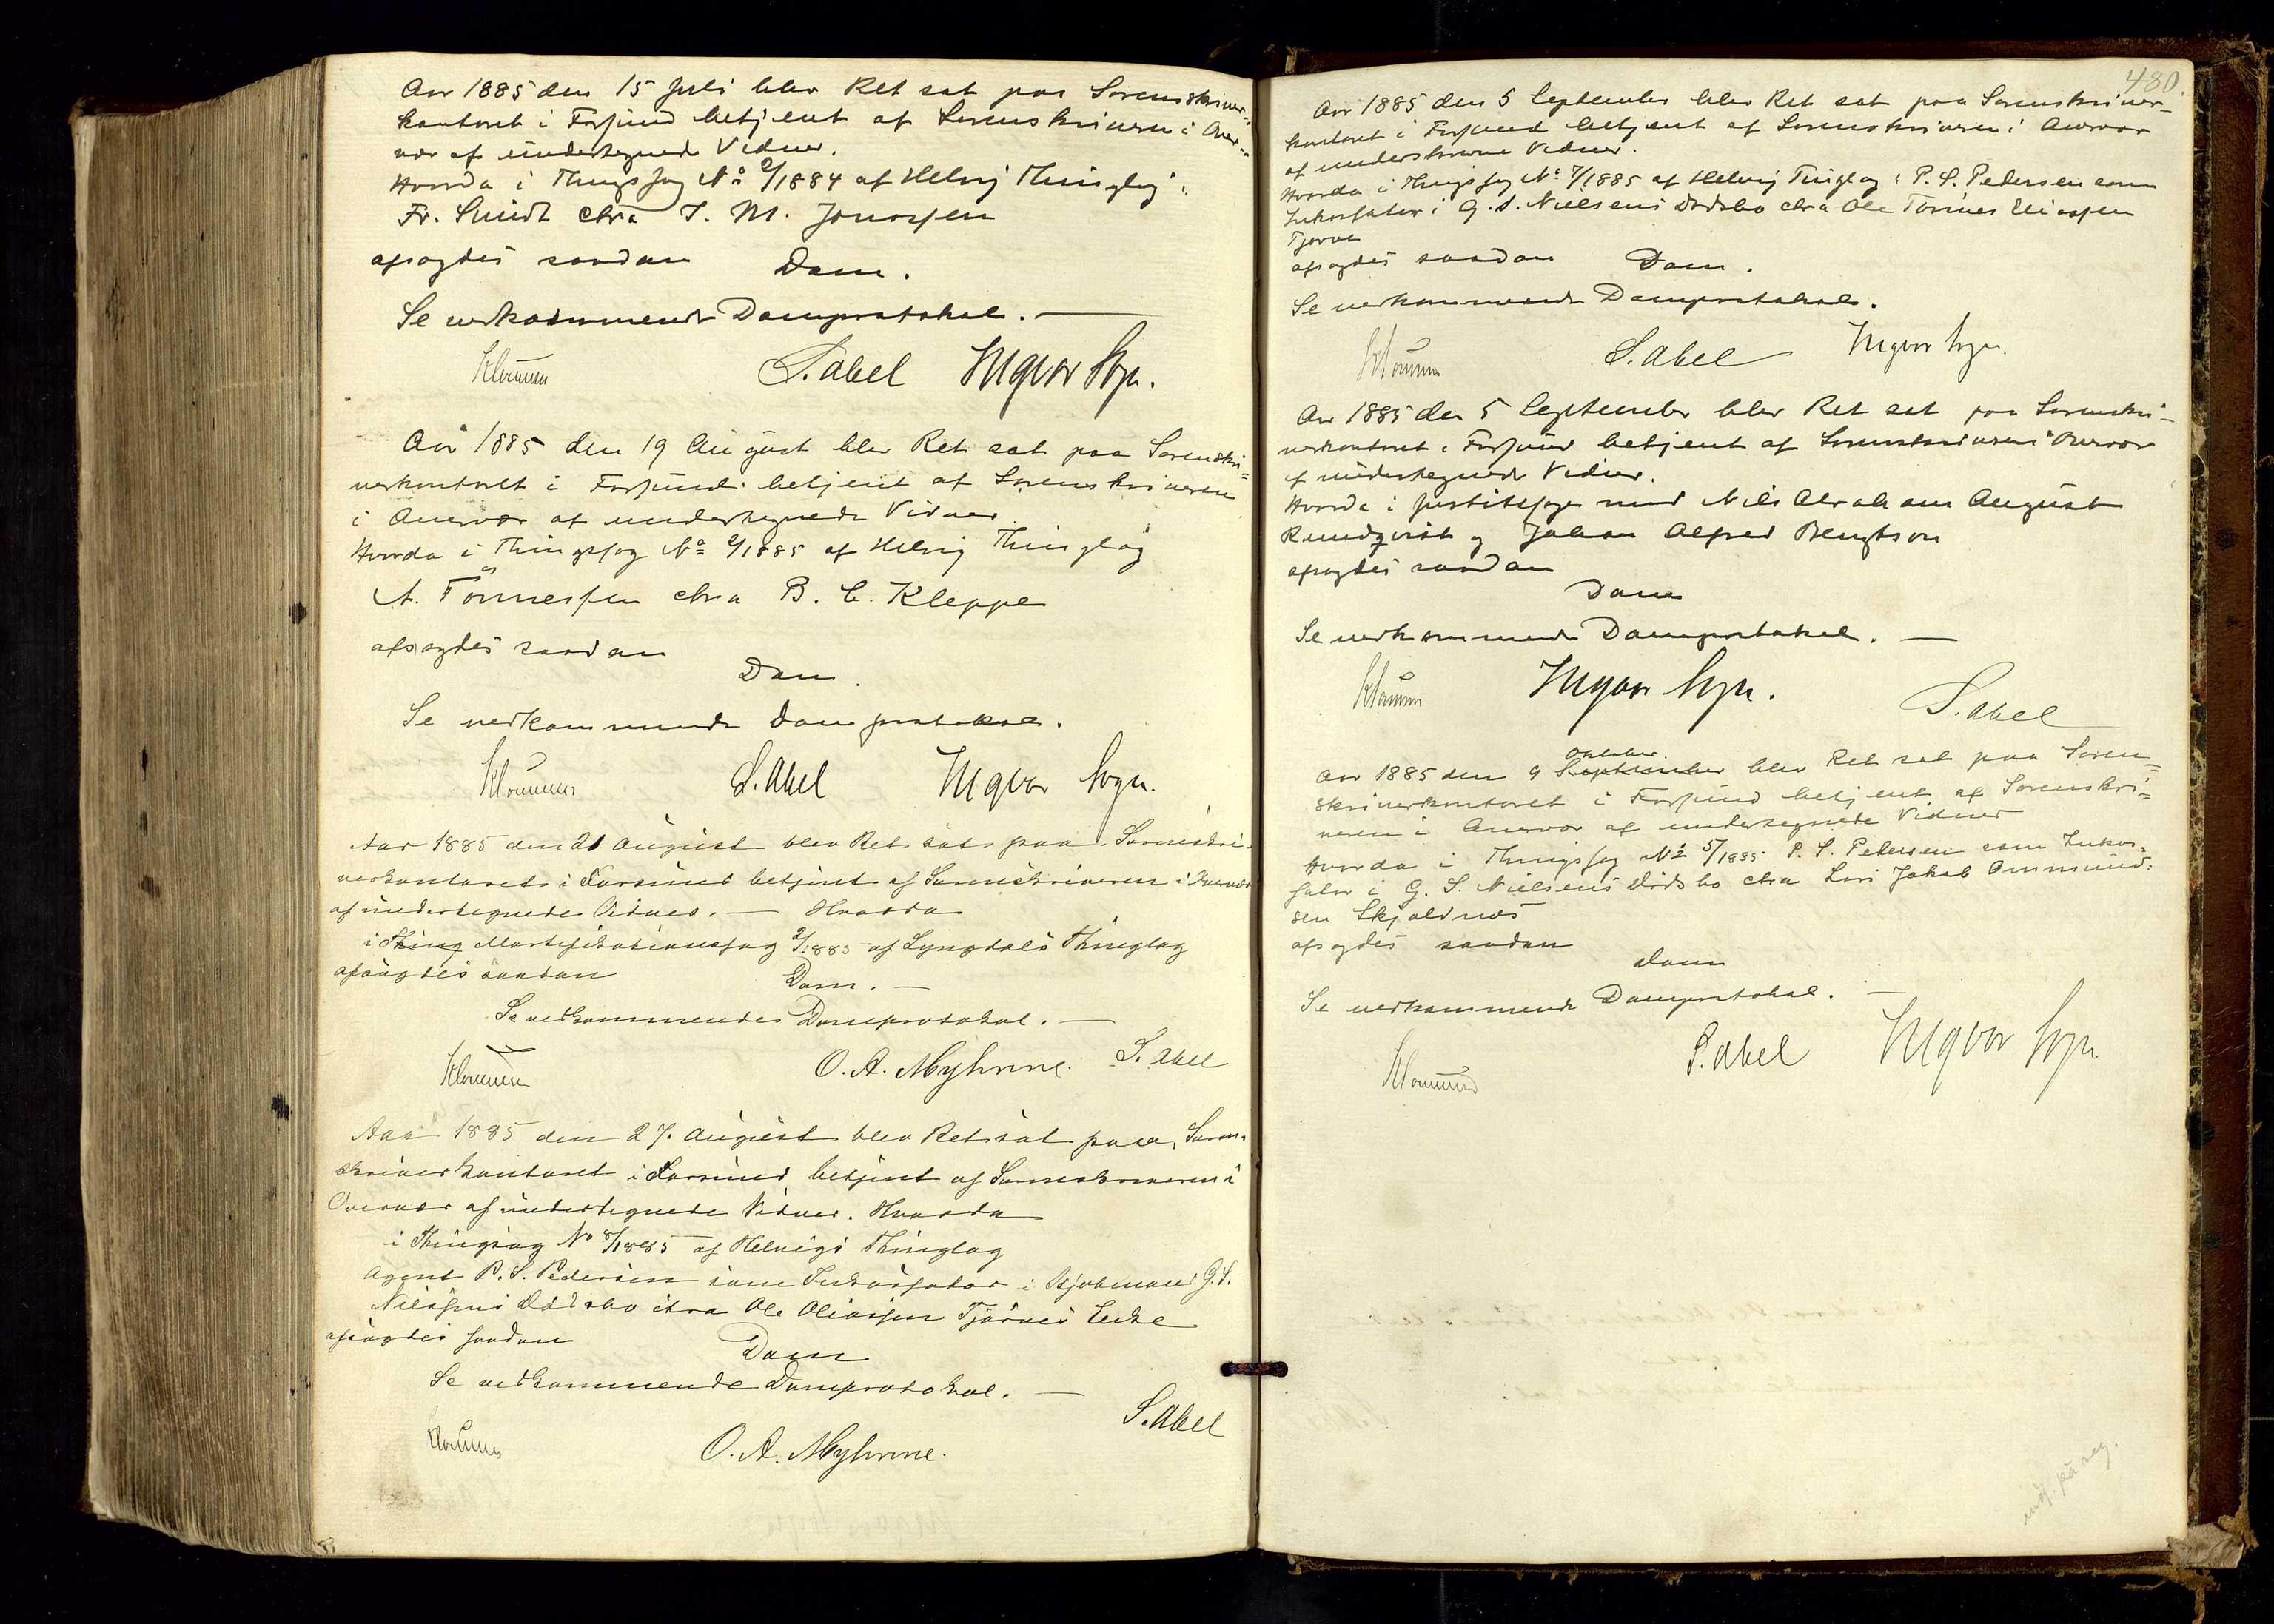 Aar 1885 den 15 Juli blev Ret sat paa Sorenskriver-
kontoret i Farsund betjent af Sorenskriveren i Over-
vær af undertegnede Vidner.
Hvorda i Thingssag No 2/1884 af Helvig Thinglag:
Fr. Smidt ctra J. M. Jonassen
afsagdes saadan Dom.
Se vedkommende Domprotokol. —
S. Abel Ingvar Sogn.
Aar 1885 den 19 August blev Ret sat paa Sorenskri=
verkontoret i Farsund betjent af Sorenskriveren
i Overvær af undertegnede Vidner
Hvorda i Thingssag No 2/1885 af Helvig Thinglag
A. Tönnessen ctra B. C. Kleppe
afsagdes saadan
Dom.
Se vedkommende Domprotokol.
S. Abel Ingvar Sogn.
Aar 1885 den 21 August blev Ret sat paa Sorenskri-
verkontoret i Farsund betjent af Sorenskriveren i Overvær
af undertegnede Vidner. — Hvorda
i Thing Mortifikationssag 2/1885 af Lyngdals Thinglag
afsagdes saadan Dom. —
Se vedkommende Domprotokol. —
O. A. Myhrene. S. Abel
Aar 1885 den 27. August blev Ret sat paa Soren-
skriverkontoret i Farsund betjent af Sorenskriveren i
Overvær af undertegnede Vidner. Hvorda
i Thingsag No 8/1885 af Helvigs Thinglag
Agent P. S. Pedersen som Inkassator i Kjøbmand G. S.
Nielsens Dødsbo ctra Ole Oliassen Tjørves Enke
afsagdes saadan
Dom
Se vedkommende Domprotokol. —
S. Abel
O. A. Myhrene.
480.
Aar 1885 den 5 September blev Ret sat paa Sorenskriver-
kontoret i Farsund betjent af Sorenskriveren i Overvær
af underskrevne Vidner.
Hvorda i Thingssag No 7/1885 af Helvig Tinglag: P. S. Pedersen som
Inkassator i G. S. Nielsens Dødsbo ctra Ole Tørres Eliassen
Tjørve
afsagdes saadan Dom.
Se vedkommende Domprotokol.
S. Abel Ingvar Sogn.
Aar 1885 den 5 September blev Ret sat paa Sorenskri-
verkontoret i Farsund betjent af Sorenskriveren i Overvær
af undertegnede Vidner.
Hvorda i Justitssag mod Nils Abraham August
Rundqvist og Johan Alfred Bengtson
afsagdes saadan
Dom
Se vedkommende Domprotokol. —
Ingvar Sogn.
S. Abel
Oktober
Aar 1885 den 9 September blev Ret sat paa Soren=
skriverkontoret i Farsund betjent af Sorenskri=
veren i Overvær af undertegnede Vidner
Hvorda i Thingssag No 5/1885 P. S. Pedersen som Inkas-
sator i G. S. Nielsens Dødsbo ctra Lars Jakob Ommund-
sen Skjoldnes
afsagdes saadan
Dom
Se vedkommende Domprotokol. —
S. Abel Ingvar Sogn